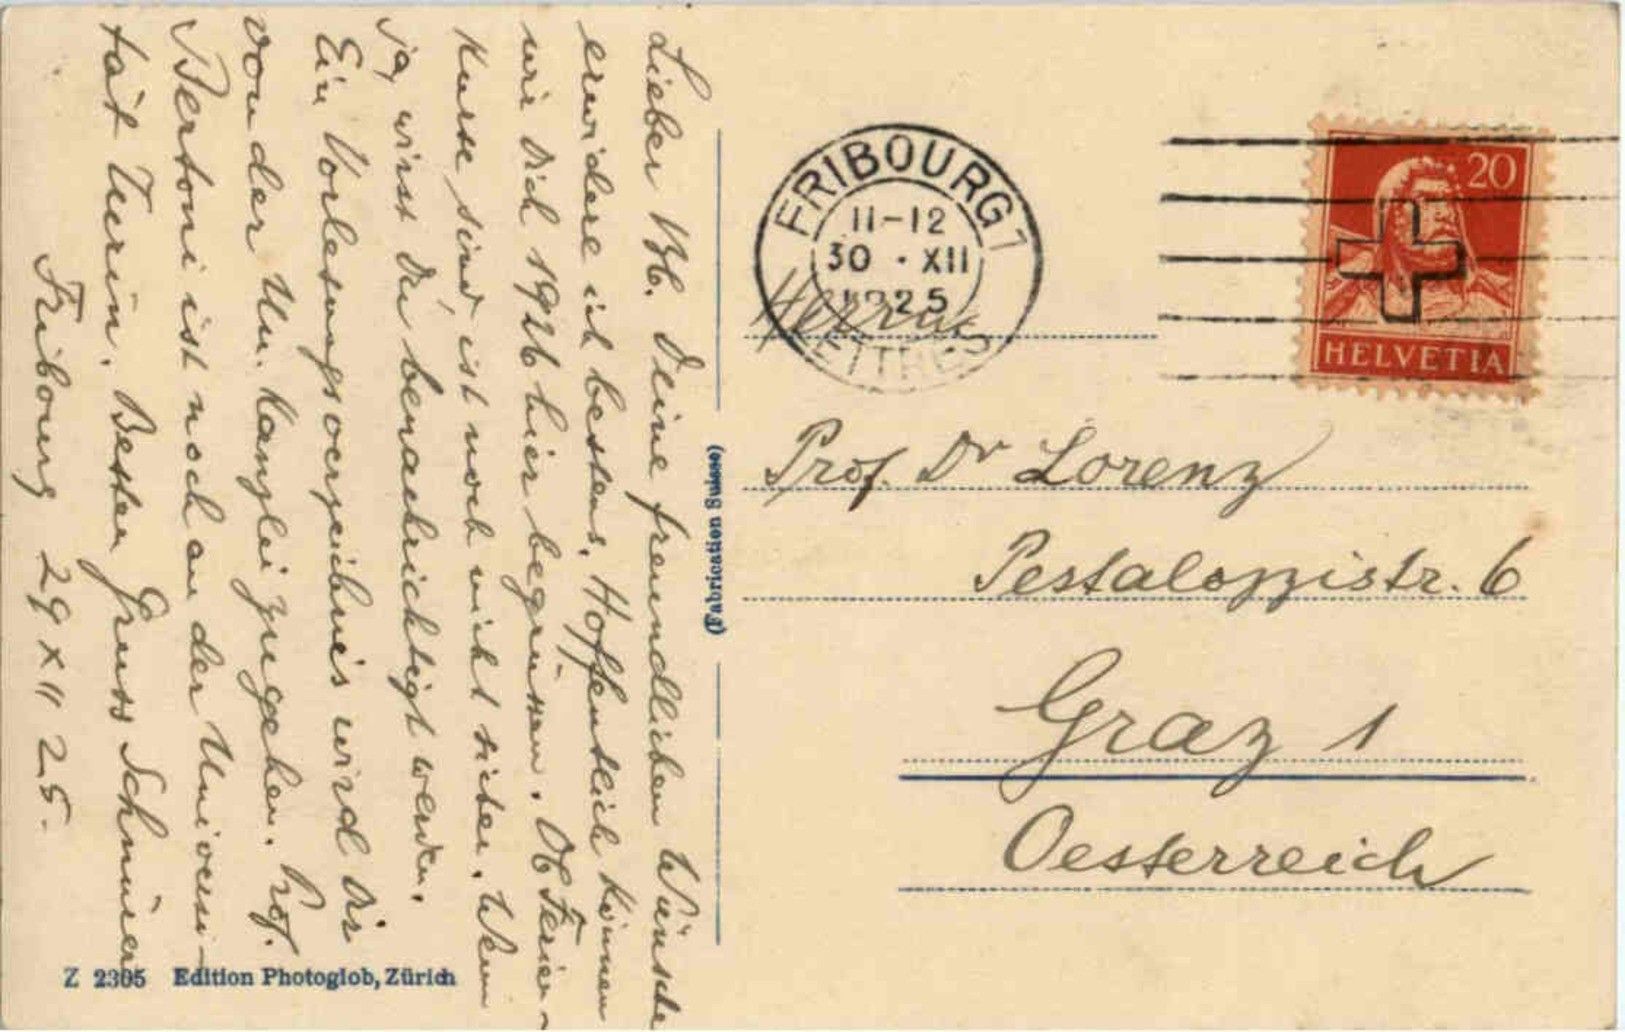 Lieber Vh. Deine freundlichen Wünsche
erwidere ich bestens. Hoffentlich können
wir Dich 1926 hier begrüssen. Ob Ferien-
kurse sind, ist noch nicht sicher. Wenn
ja, wirst Du benachrichtigt werden.
Ein Vorlesungsverzeichnis wird Dir
von der Un. Kanzlei zugehen. Prof.
Bertoni ist noch an der Universi-
tät Turin. Besten Gruss Schnürer
Fribourg 29 XII 25.
Z 2305 Edition Photoglob, Zürich
(Fabrication Suisse)
FRIBOURG 1
11-12
30 · XII
1925
LETTRES
20
HELVETIA
Herrn
Prof. Dr Lorenz
Pestalozzistr. 6
Graz 1
Oesterreich